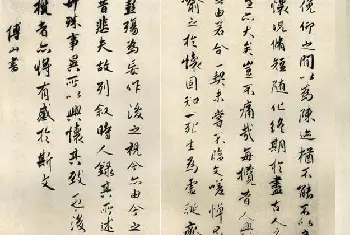 俛仰之間以為陳迹猶不能不以
懷況脩短隨化終期於盡古人
亦大矣豈不痛哉每攬昔人興
由若合一契未嘗不臨文嗟悼
喻之於懷固知一死生為虛誕
彭殤為妄作後之視今亦由今之
昔悲夫故列敘時人錄其所述
世殊事異所以興懷其致一也後
攬者亦將有感於斯文
傅山書